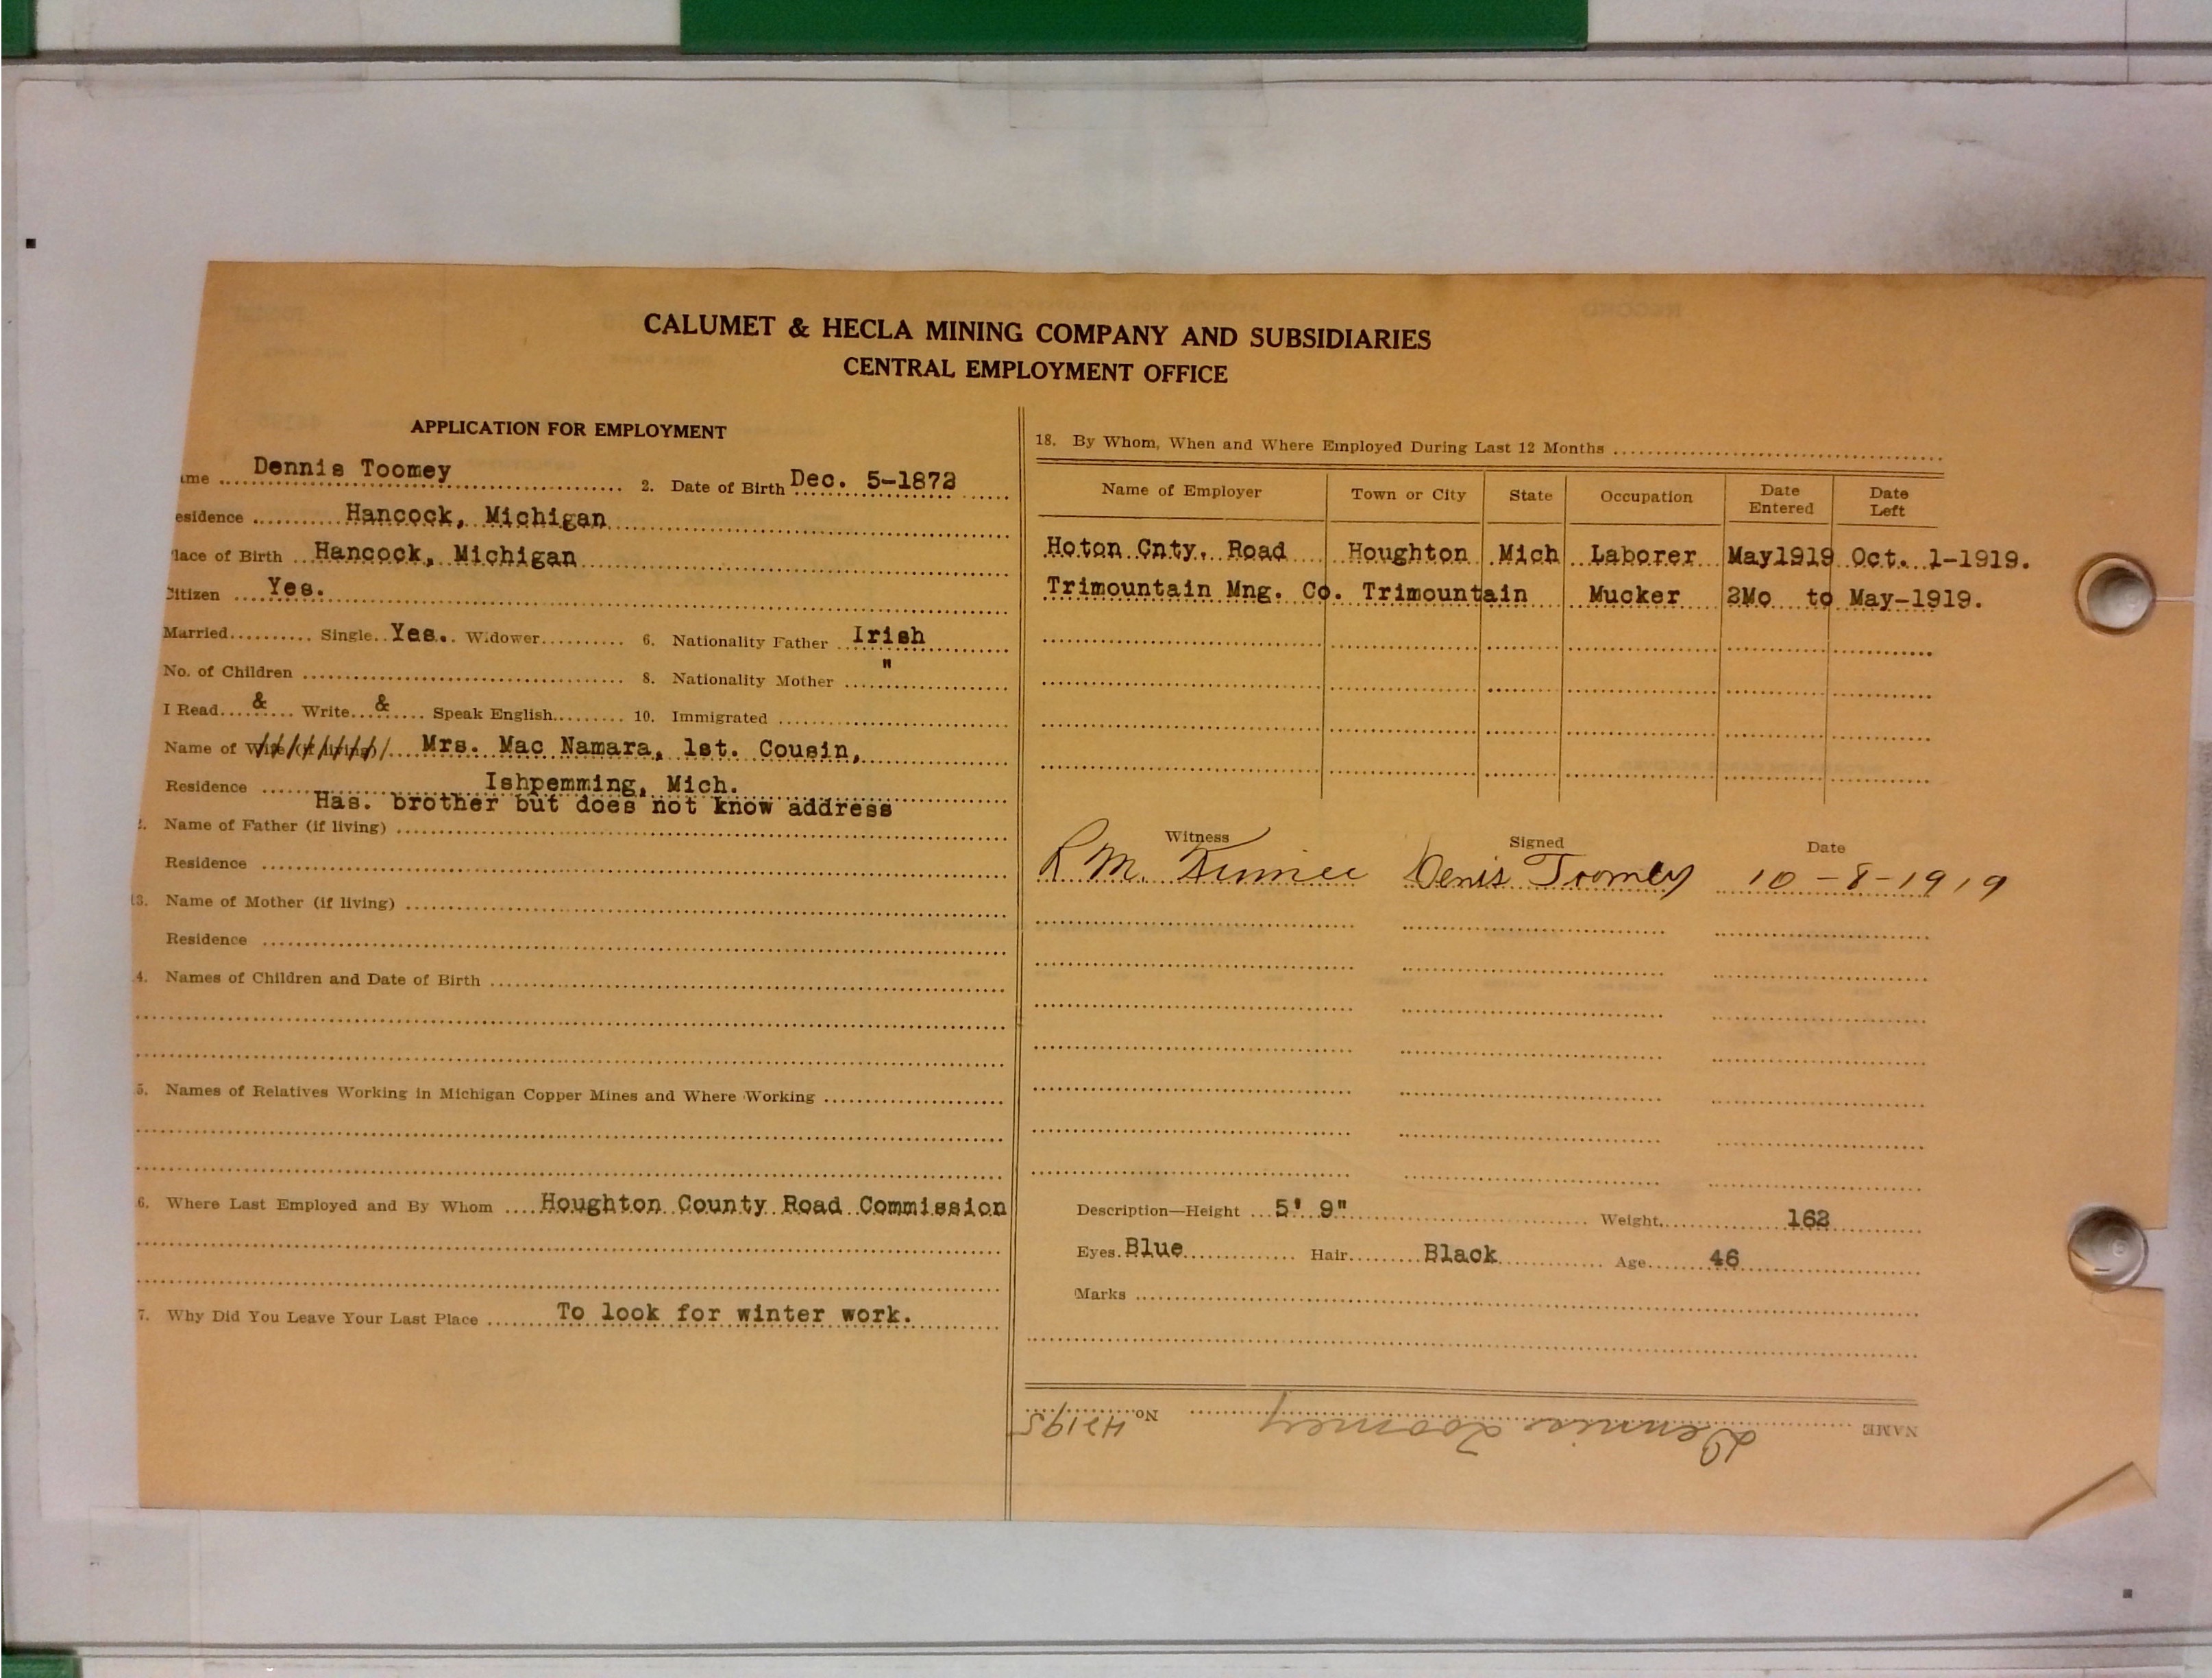 CALUMET & HECLA MINING COMPANY AND SUBSIDIARIES
CENTRAL EMPLOYMENT OFFICE
APPLICATION FOR EMPLOYMENT
ame Dennis Toomey 2. Date of Birth Dec. 5-1872
esidence Hancock, Michigan
lace of Birth Hancock, Michigan
Citizen Yes.
Married Single Yes. Widower 6. Nationality Father Irish
No. of Children 8. Nationality Mother "
I Read & Write & Speak English 10. Immigrated
Name of Wife (if living) Mrs. Mac Namara, 1st. Cousin,
Residence Ishpemming, Mich.
Has. brother but does not know address
2. Name of Father (if living)
Residence
13. Name of Mother (if living)
Residence
4. Names of Children and Date of Birth
5. Names of Relatives Working in Michigan Copper Mines and Where Working
6. Where Last Employed and By Whom Houghton County Road Commission
7. Why Did You Leave Your Last Place To look for winter work.
18. By Whom, When and Where Employed During Last 12 Months
Name of Employer Town or City State Occupation Date Entered Date Left
Hoton Cnty. Road Houghton Mich Laborer May1919 Oct. 1-1919.
Trimountain Mng. Co. Trimountain Mucker 2Mo to May-1919.
Witness Signed Date
R M. Denis Toomey 10-8-1919
Description—Height 5' 9" Weight 162
Eyes Blue Hair Black Age 46
Marks
NAME Dennis Toomey No. 42195